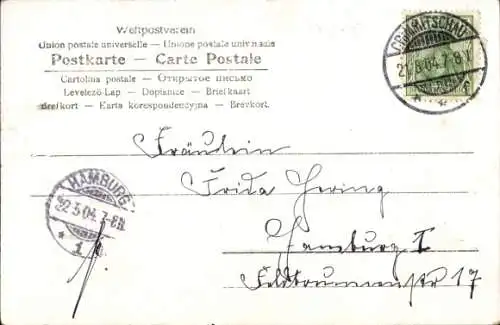 Weltpostverein
Union postale universelle – Unione postale universale
Postkarte – Carte Postale
Cartolina postale – Открытое письмо
Levelező-Lap – Dopisnice – Briefkaart
Brefkort – Karta korespondencyjna – Brevkort.
CRIMMITSCHAU
21.5.04. 7-8
* f
Fräulein
Frida Hering
Hamburg I
Feldbrunnenstr 17
HAMBURG
22.5.04. 7-8N.
* 1